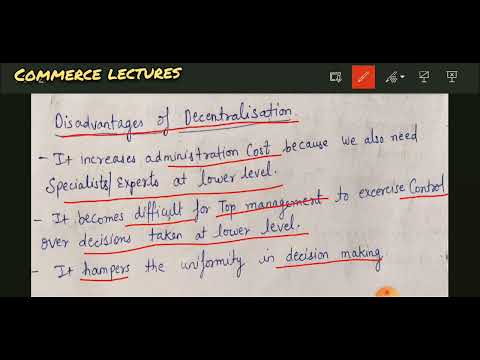 COMMERCE LECTURES
Disadvantages of Decentralisation.
- It increases administration Cost because we also need
Specialists/Experts at lower level.
- It becomes difficult for Top management to excercise Control
over decisions taken at lower level.
- It hampers the uniformity in decision making